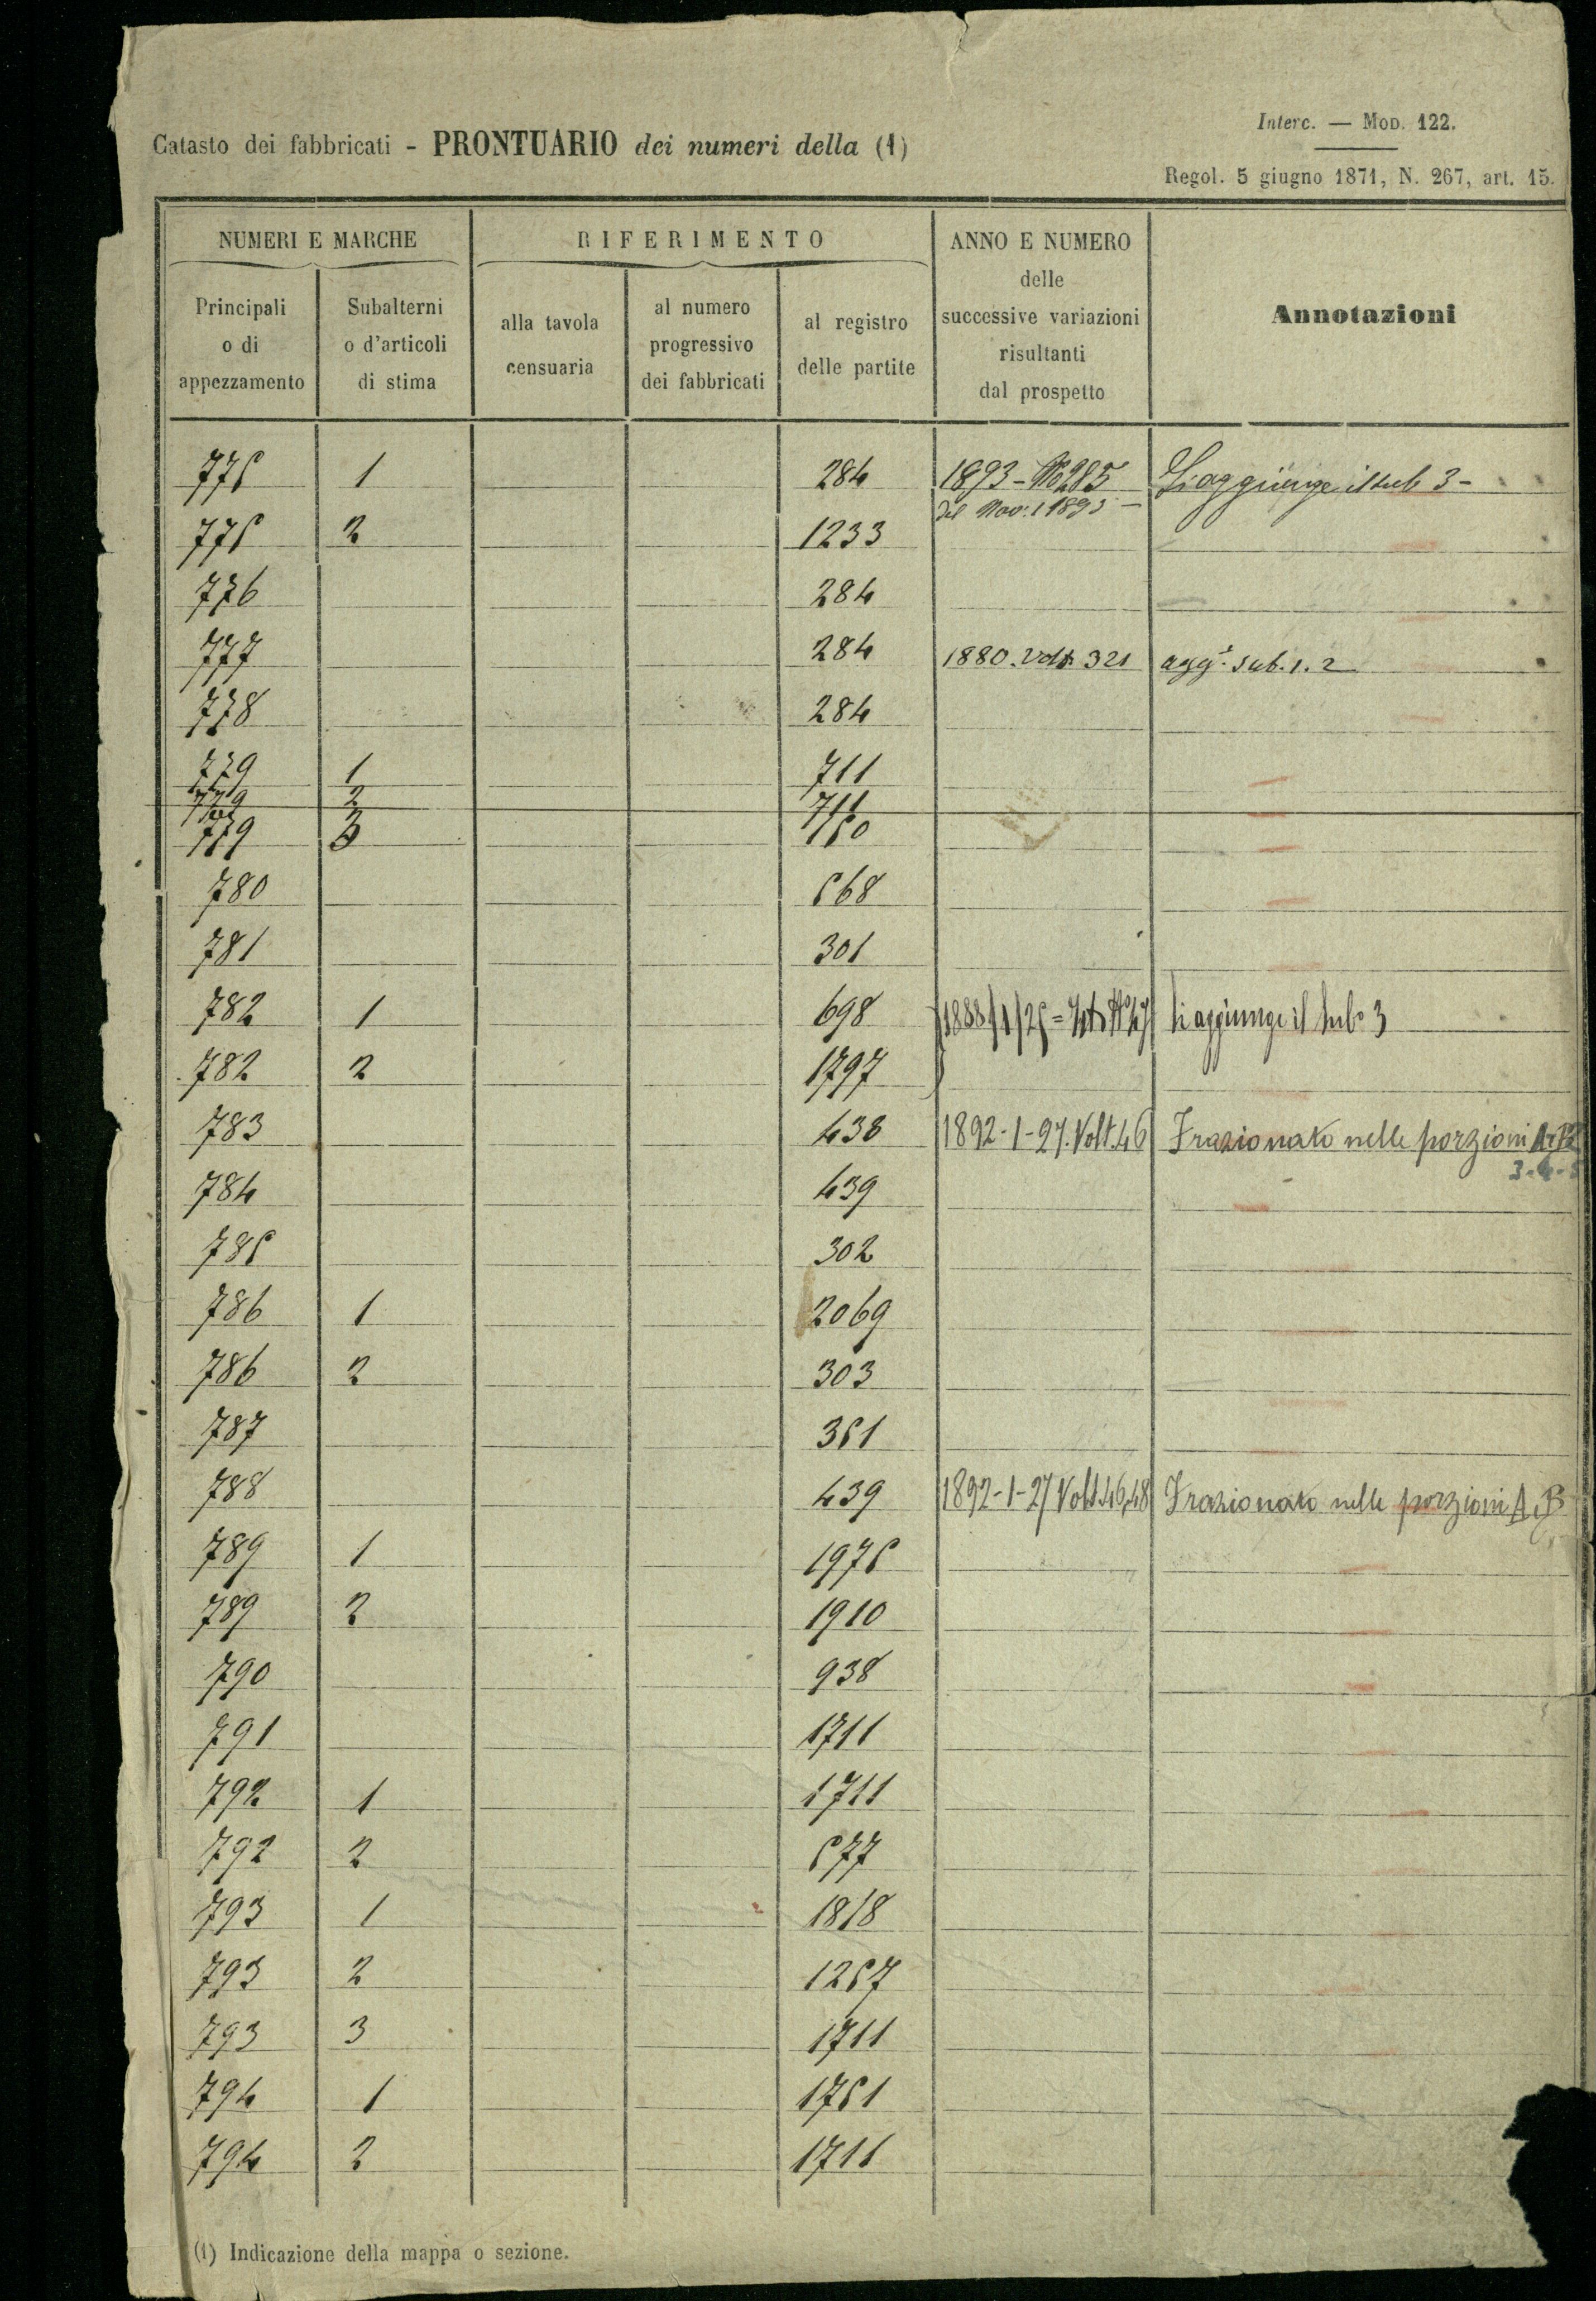 Catasto dei fabbricati - PRONTUARIO dei numeri della (1)
Interc. — Mod. 122.
Regol. 5 giugno 1871, N. 267, art. 15.
NUMERI E MARCHE RIFERIMENTO ANNO E NUMERO delle successive variazioni risultanti dal prospetto Annotazioni
Principali o di appezzamento Subalterni o d'articoli di stima alla tavola censuaria al numero progressivo dei fabbricati al registro delle partite
775 1 284 1893 - No 285 Si aggiunge il sub 3 -
del Nov. 1893 —
775 2 1233
776 284
777 284 1880. Volt. 321 agg. sub. 1. 2
778 284
779 1 711
779 2 711
779 3 750
780 568
781 301
782 1 698 1888/1/25 = Si aggiunge il sub 3
782 2 1797
783 438 1892-1-27. Volt. 46 Frazionato nelle porzioni
3-4-5
784 439
785 302
786 1 2069
786 2 303
787 351
788 439 1892-1-27 Volt. 46,48 Frazionato nelle porzioni A, B
789 1 1975
789 2 1910
790 938
791 1711
792 1 1711
792 2 577
793 1 1818
793 2 1257
793 3 1711
794 1 1751
794 2 1711
(1) Indicazione della mappa o sezione.